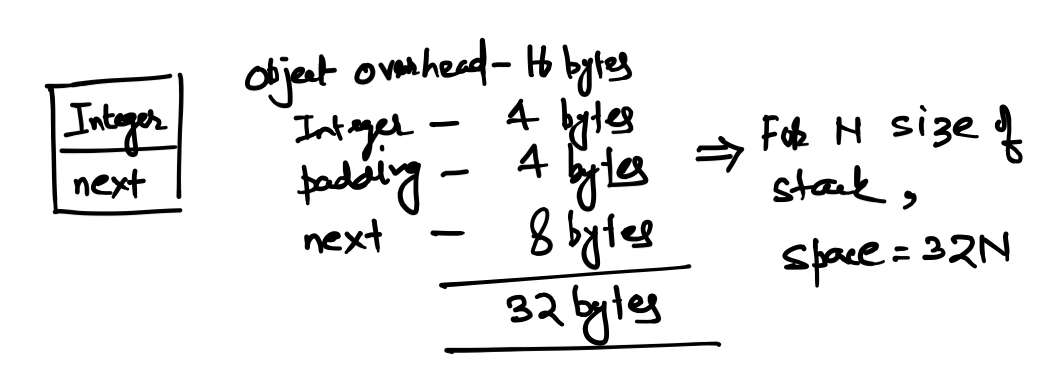 Integer
next
Object overhead - 16 bytes
Integer - 4 bytes
padding - 4 bytes
next - 8 bytes
32 bytes
⇒ For N size of
stack,
space = 32N